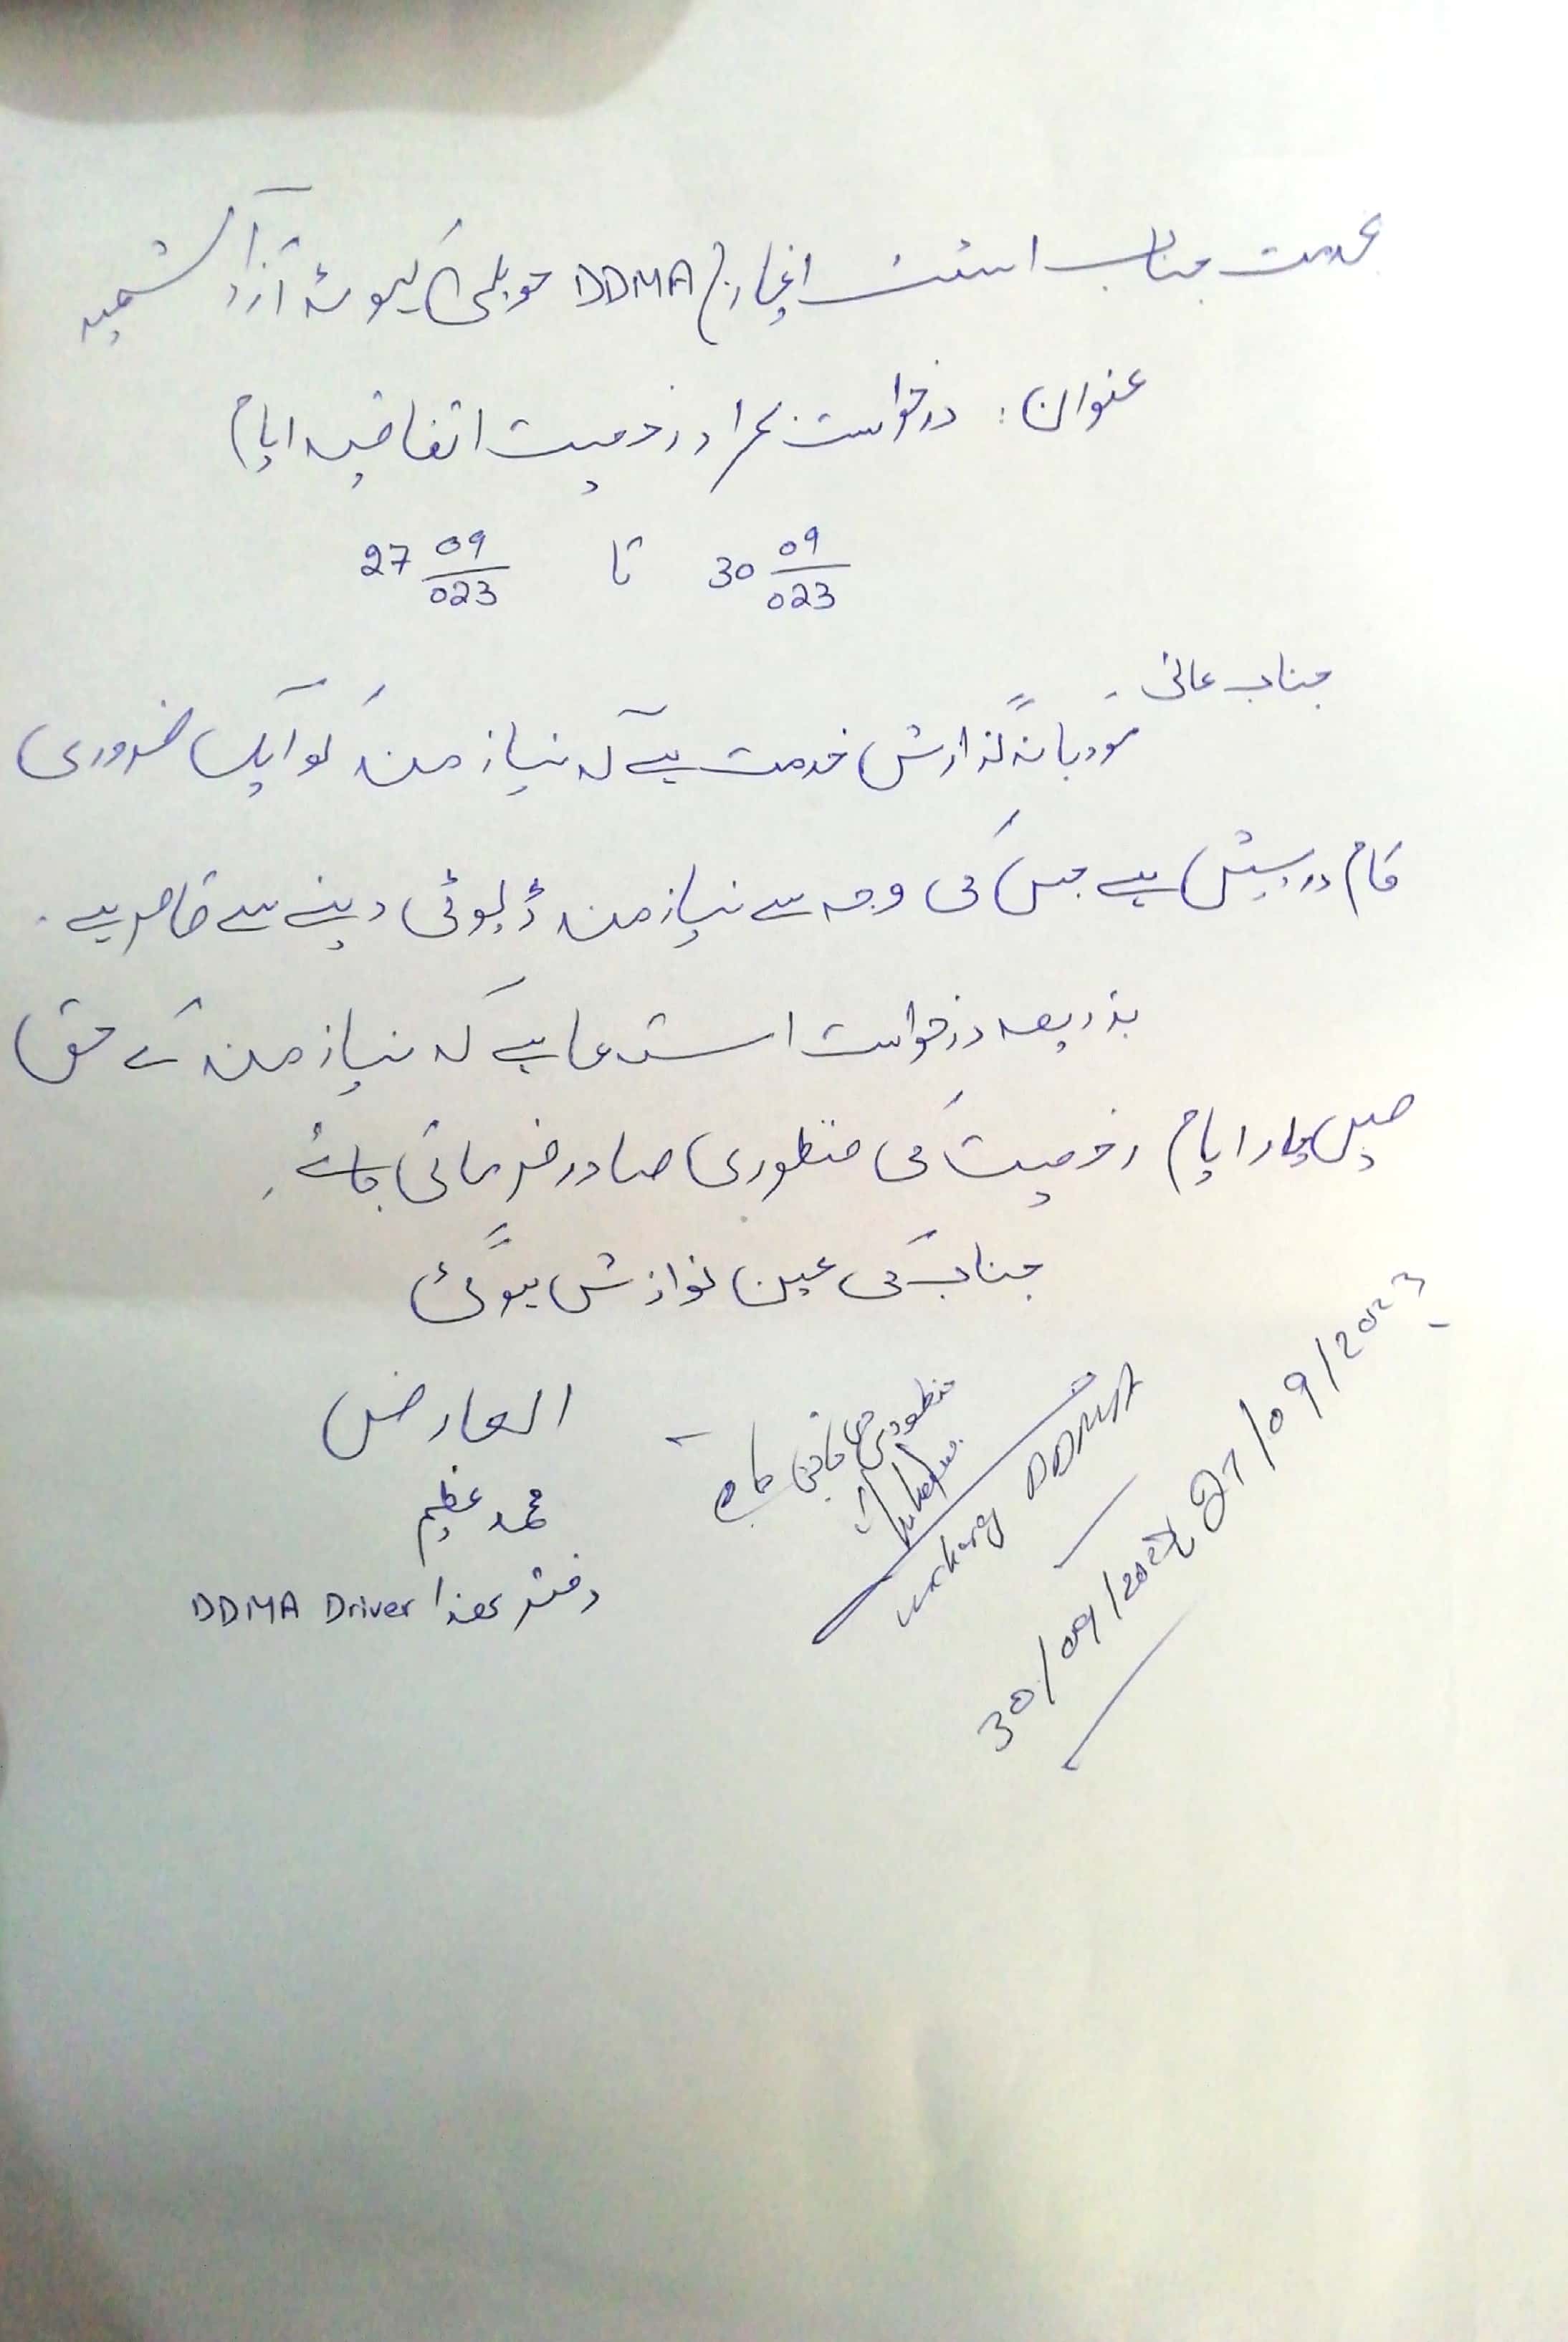 بخدمت جناب اسٹنٹ انچارج DDMA حویلی کہوٹہ آزاد کشمیر
عنوان: درخواست بمراد رخصت اتفاقیہ ایام
27 09/023 تا 30 09/023
جناب عالی
مودبانہ گذارش خدمت ہے کہ نیازمند کو ایک ضروری
کام درپیش ہے جس کی وجہ سے نیازمند ڈیوٹی دینے سے قاصر ہے۔
بذریعہ درخواست استدعا ہے کہ نیازمند کے حق
میں چار ایام رخصت کی منظوری صادر فرمائی جائے۔
جناب کی عین نوازش ہوگی
العارض
محمد عظیم
DDMA Driver دفتر ھذا
منظوری دی جاتی ہے
Incharg DDMA
27/09/2023
30/09/202